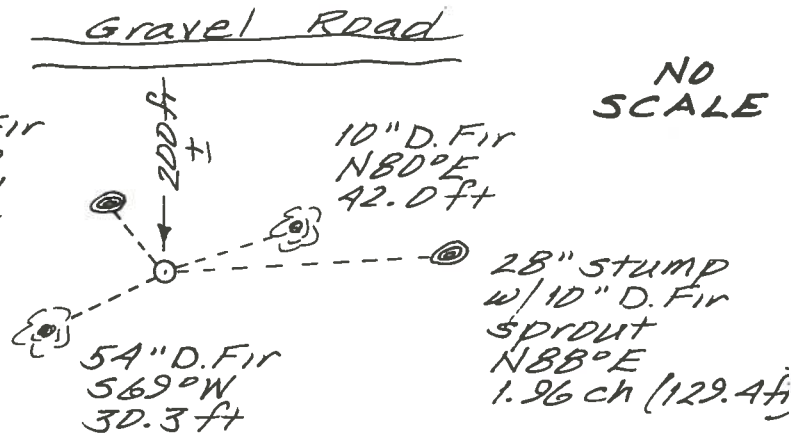 Gravel Road
NO
SCALE
200ft
±
Fir
10" D. Fir
N80°E
42.0 ft
28" stump
w/ 10" D. Fir
sprout
N88°E
1.96 ch (129.4ft)
54" D. Fir
S69°W
30.3 ft